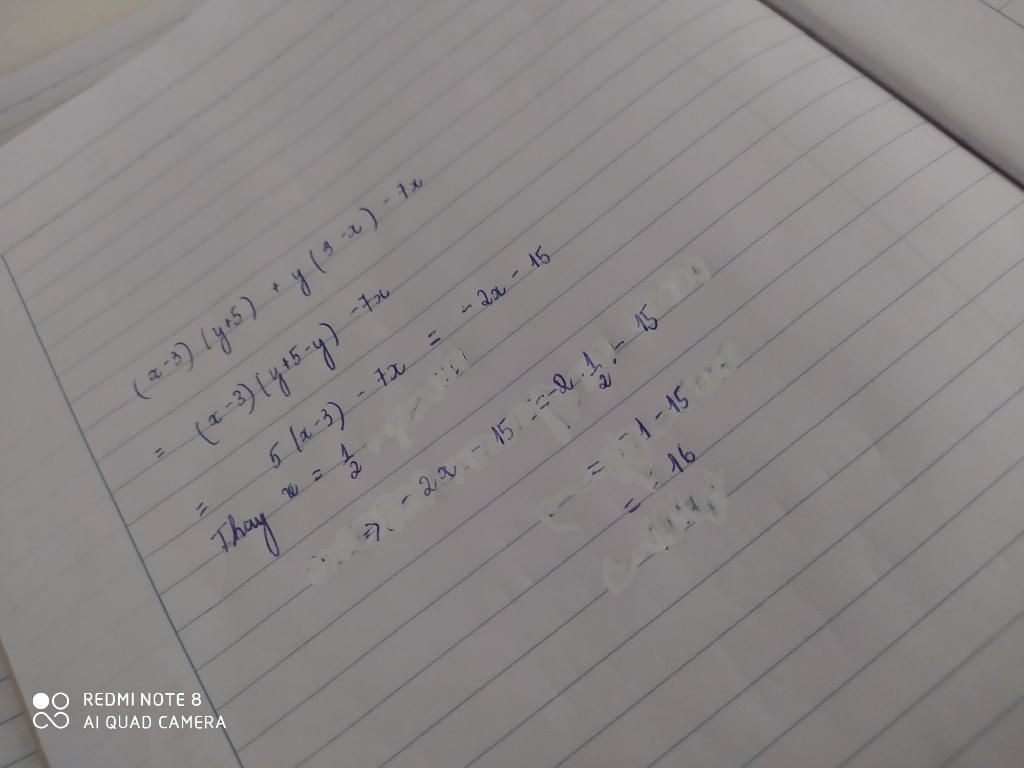 (x-3)(y+5) + y(3-x) - 7x
= (x-3)(y+5-y) - 7x
= 5(x-3) - 7x = -2x - 15
Thay x = 1/2
=> -2x - 15 = -2 · 1/2 - 15
= -1 - 15
= -16
REDMI NOTE 8
AI QUAD CAMERA